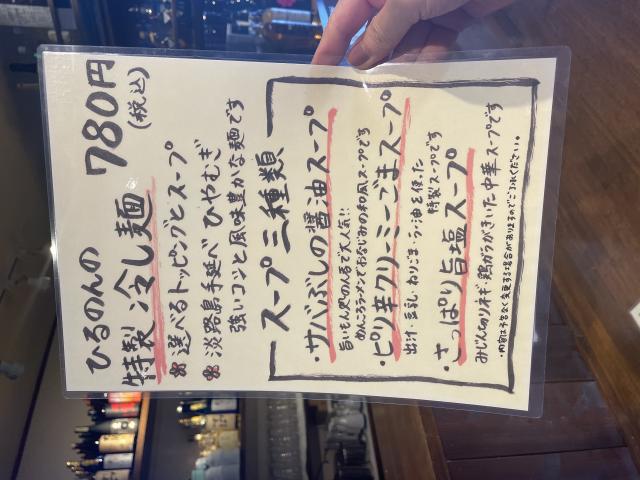 ひるのんの
特製 冷し麺 780円
(税込)
❀ 選べるトッピングとスープ
❀ 淡路島手延べ ひやむぎ
強いコシと風味豊かな麺です
スープ三種類
・サバぶしの醤油スープ
旨いもん処のん吉で大人気!!
めんころラーメンでおなじみの和風スープです
・ピリ辛クリーミーごまスープ
出汁・豆乳・ねりごま・ラー油を使った
特製スープです
・さっぱり旨塩スープ
みじん切りネギ・鶏ガラがきいた中華スープです
・内容は予告なく変更する場合がありますのでご了承ください。